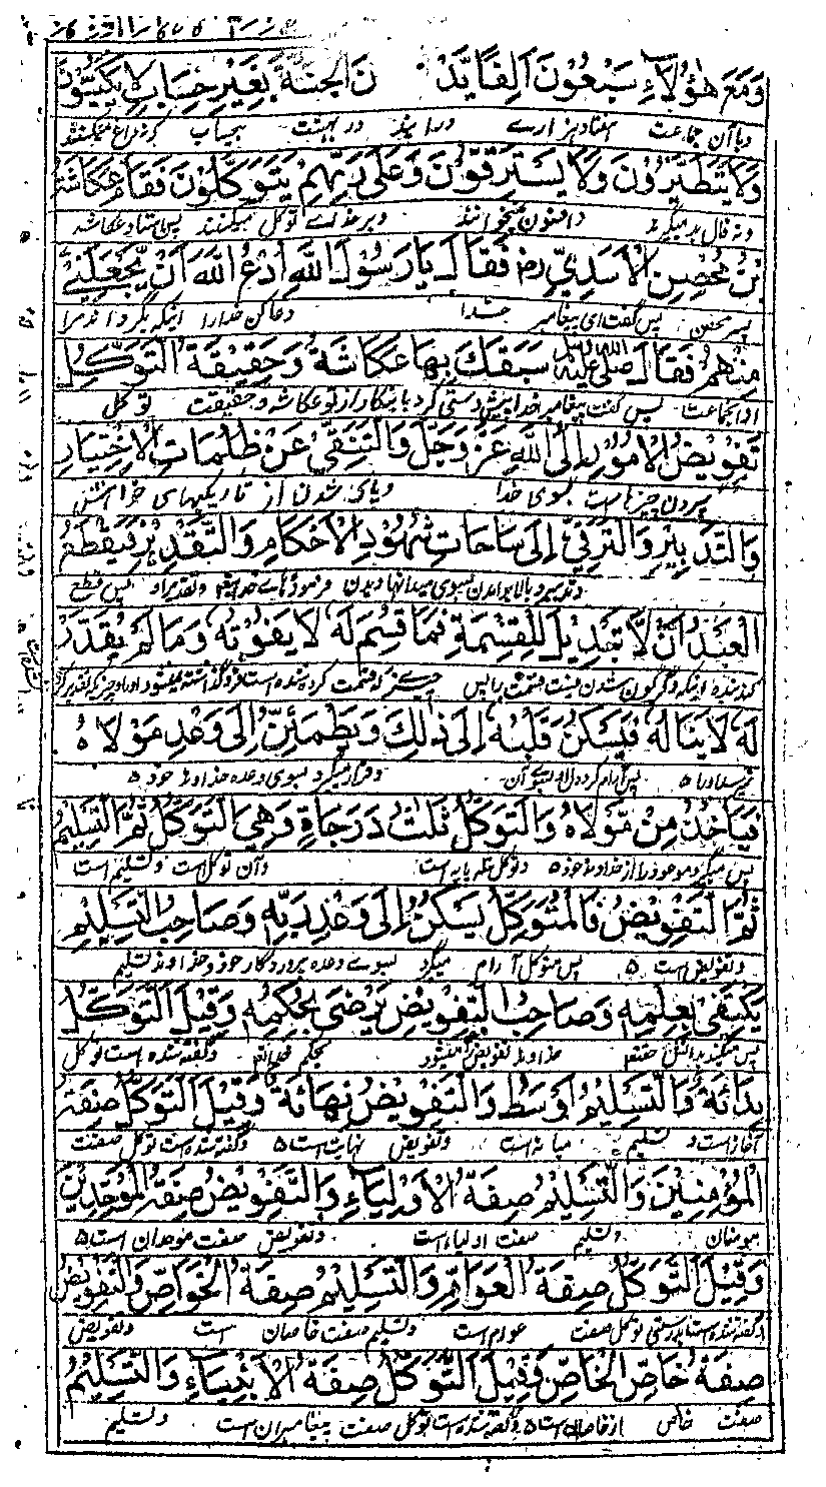 وَمَعَ هٰؤُلَاءِ سَبْعُونَ اَلْفًا يَدْ نَ الْجَنَّةَ بِغَيْرِ حِسَابٍ لَا يَكْتَوُونَ
و با آن جماعت هفتاد هزار در بهشت بیحساب که داغ نمیکنند
وَلَا يَتَطَيَّرُوْنَ وَلَا يَسْتَرْقُوْنَ وَعَلٰى رَبِّهِمْ يَتَوَكَّلُوْنَ فَقَامَ عُكَاشَةُ
و نه فال بد میگیرند و افسون نمیخوانند و بر خدای توکل میکنند پس استاد عکاشه
بْنُ مُحْصِنٍ الْاَسَدِيِّ رض فَقَالَ يَا رَسُوْلَ اللّٰهِ اُدْعُ اللّٰهَ اَنْ يَّجْعَلَنِيْ
پسر محصن پس گفت ای پیغامبر خدا دعا کن خدا را اینکه بگرداند مرا
مِنْهُمْ فَقَالَ صلى الله عليه وسلم سَبَقَكَ بِهَا عُكَاشَةُ وَحَقِيْقَةُ التَّوَكُّلِ
از انجماعت پس گفت پیغامبر خدا پیش دستی کرد باینکار از تو عکاشه و حقیقت توکل
تَفْوِيْضُ الْاُمُوْرِ اِلَى اللّٰهِ عَزَّ وَجَلَّ وَالتَّنَقِّيْ عَنْ ظُلُمَاتِ الْاِخْتِيَارِ
سپردن چیزهاست بسوی خدا و پاک شدن از تاریکیهای خواستن
وَالتَّدْبِيْرِ وَالتَّرَقِّيْ اِلٰى سَاحَاتِ شُهُوْدِ الْاَحْكَامِ وَالتَّقْدِيْرِ فَيَقْطَعُ
و تدبیر و بالا برآمدن بسوی میدانها دیدن فرمودهای خدا و تقدیر او پس قطع
الْعَبْدُ اَنْ لَّا تَبْدِيْلَ لِلْقِسْمَةِ فَمَا قُسِمَ لَهٗ لَا يَفُوْتُهٗ وَمَا لَمْ يُقَدَّرْ
کند بنده اینکه دگرگون شدن نیست قسمت را پس چیزیکه قسمت کرده شده است
لَهٗ لَا يَنَالُهٗ فَيَسْكُنُ قَلْبُهٗ اِلٰى ذٰلِكَ وَيَطْمَئِنُّ اِلٰى وَعْدِ مَوْلَاهُ
نرسد او را پس آرام گیرد دل او بسوی آن و قرار میگیرد بسوی وعده خداوند خود
فَيَأْخُذُ مِنْ مَّوْلَاهُ وَالتَّوَكُّلُ ثَلٰثُ دَرَجَاتٍ وَهِيَ التَّوَكُّلُ ثُمَّ التَّسْلِيْمُ
پس میگیرد موعود را از خداوند خود و توکل سه پایه است و آن توکل است و تسلیم است
ثُمَّ التَّفْوِيْضُ فَالْمُتَوَكِّلُ يَسْكُنُ اِلٰى وَعْدِ رَبِّهٖ وَصَاحِبُ التَّسْلِيْمِ
و تفویض است پس متوکل آرام میگیرد بسوی وعده پروردگار خود و خداوند تسلیم
يَكْتَفِيْ بِعِلْمِهٖ وَصَاحِبُ التَّفْوِيْضِ يَرْضٰى بِحُكْمِهٖ وَقِيْلَ التَّوَكُّلُ
خداوند تفویض بحکم و گفته شده است توکل
بِدَايَةٌ وَالتَّسْلِيْمُ اَوْسَطُ وَالتَّفْوِيْضُ نِهَايَةٌ وَقِيْلَ التَّوَكُّلُ صِفَةُ
آغاز است و تسلیم میانه است و تفویض نهایت است و گفته شده است توکل صفت
الْمُؤْمِنِيْنَ وَالتَّسْلِيْمُ صِفَةُ الْاَوْلِيَاءِ وَالتَّفْوِيْضُ صِفَةُ الْمُوَحِّدِيْنَ
مومنان و تسلیم صفت اولیاء است و تفویض صفت موحدان است
وَقِيْلَ التَّوَكُّلُ صِفَةُ الْعَوَامِّ وَالتَّسْلِيْمُ صِفَةُ الْخَوَاصِّ وَالتَّفْوِيْضُ
و گفته شده است بدرستی توکل صفت عوام است و تسلیم صفت خاصان است و تفویض
صِفَةُ خَاصِّ الْخَاصِّ وَقِيْلَ التَّوَكُّلُ صِفَةُ الْاَنْبِيَاءِ وَالتَّسْلِيْمُ
صفت خاص از خاصان است و گفته شده است توکل صفت پیغامبران است و تسلیم